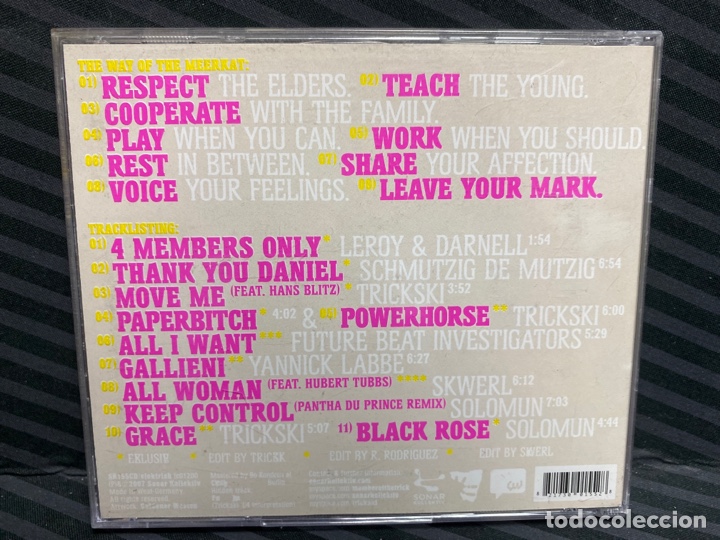 THE WAY OF THE MEERKAT:
01) RESPECT THE ELDERS. 02) TEACH THE YOUNG.
03) COOPERATE WITH THE FAMILY.
04) PLAY WHEN YOU CAN. 05) WORK WHEN YOU SHOULD.
06) REST IN BETWEEN. 07) SHARE YOUR AFFECTION.
08) VOICE YOUR FEELINGS. 09) LEAVE YOUR MARK.
TRACKLISTING:
01) 4 MEMBERS ONLY* LEROY & DARNELL 1:54
02) THANK YOU DANIEL* SCHMUTZIG DE MUTZIG 6:54
03) MOVE ME (FEAT. HANS BLITZ)* TRICKSKI 3:52
04) PAPERBITCH* 4:02 & 05) POWERHORSE** TRICKSKI 6:00
06) ALL I WANT*** FUTURE BEAT INVESTIGATORS 5:29
07) GALLIENI** YANNICK LABBÉ 6:27
08) ALL WOMAN (FEAT. HUBERT TUBBS)**** SKWERL 6:12
09) KEEP CONTROL (PANTHA DU PRINCE REMIX) SOLOMUN 7:03
10) GRACE** TRICKSKI 5:07 11) BLACK ROSE* SOLOMUN 4:44
* EKLUSIV ** EDIT BY TRICKK *** EDIT BY R. RODRIGUEZ **** EDIT BY SKWERL
SONAR
todocoleccion